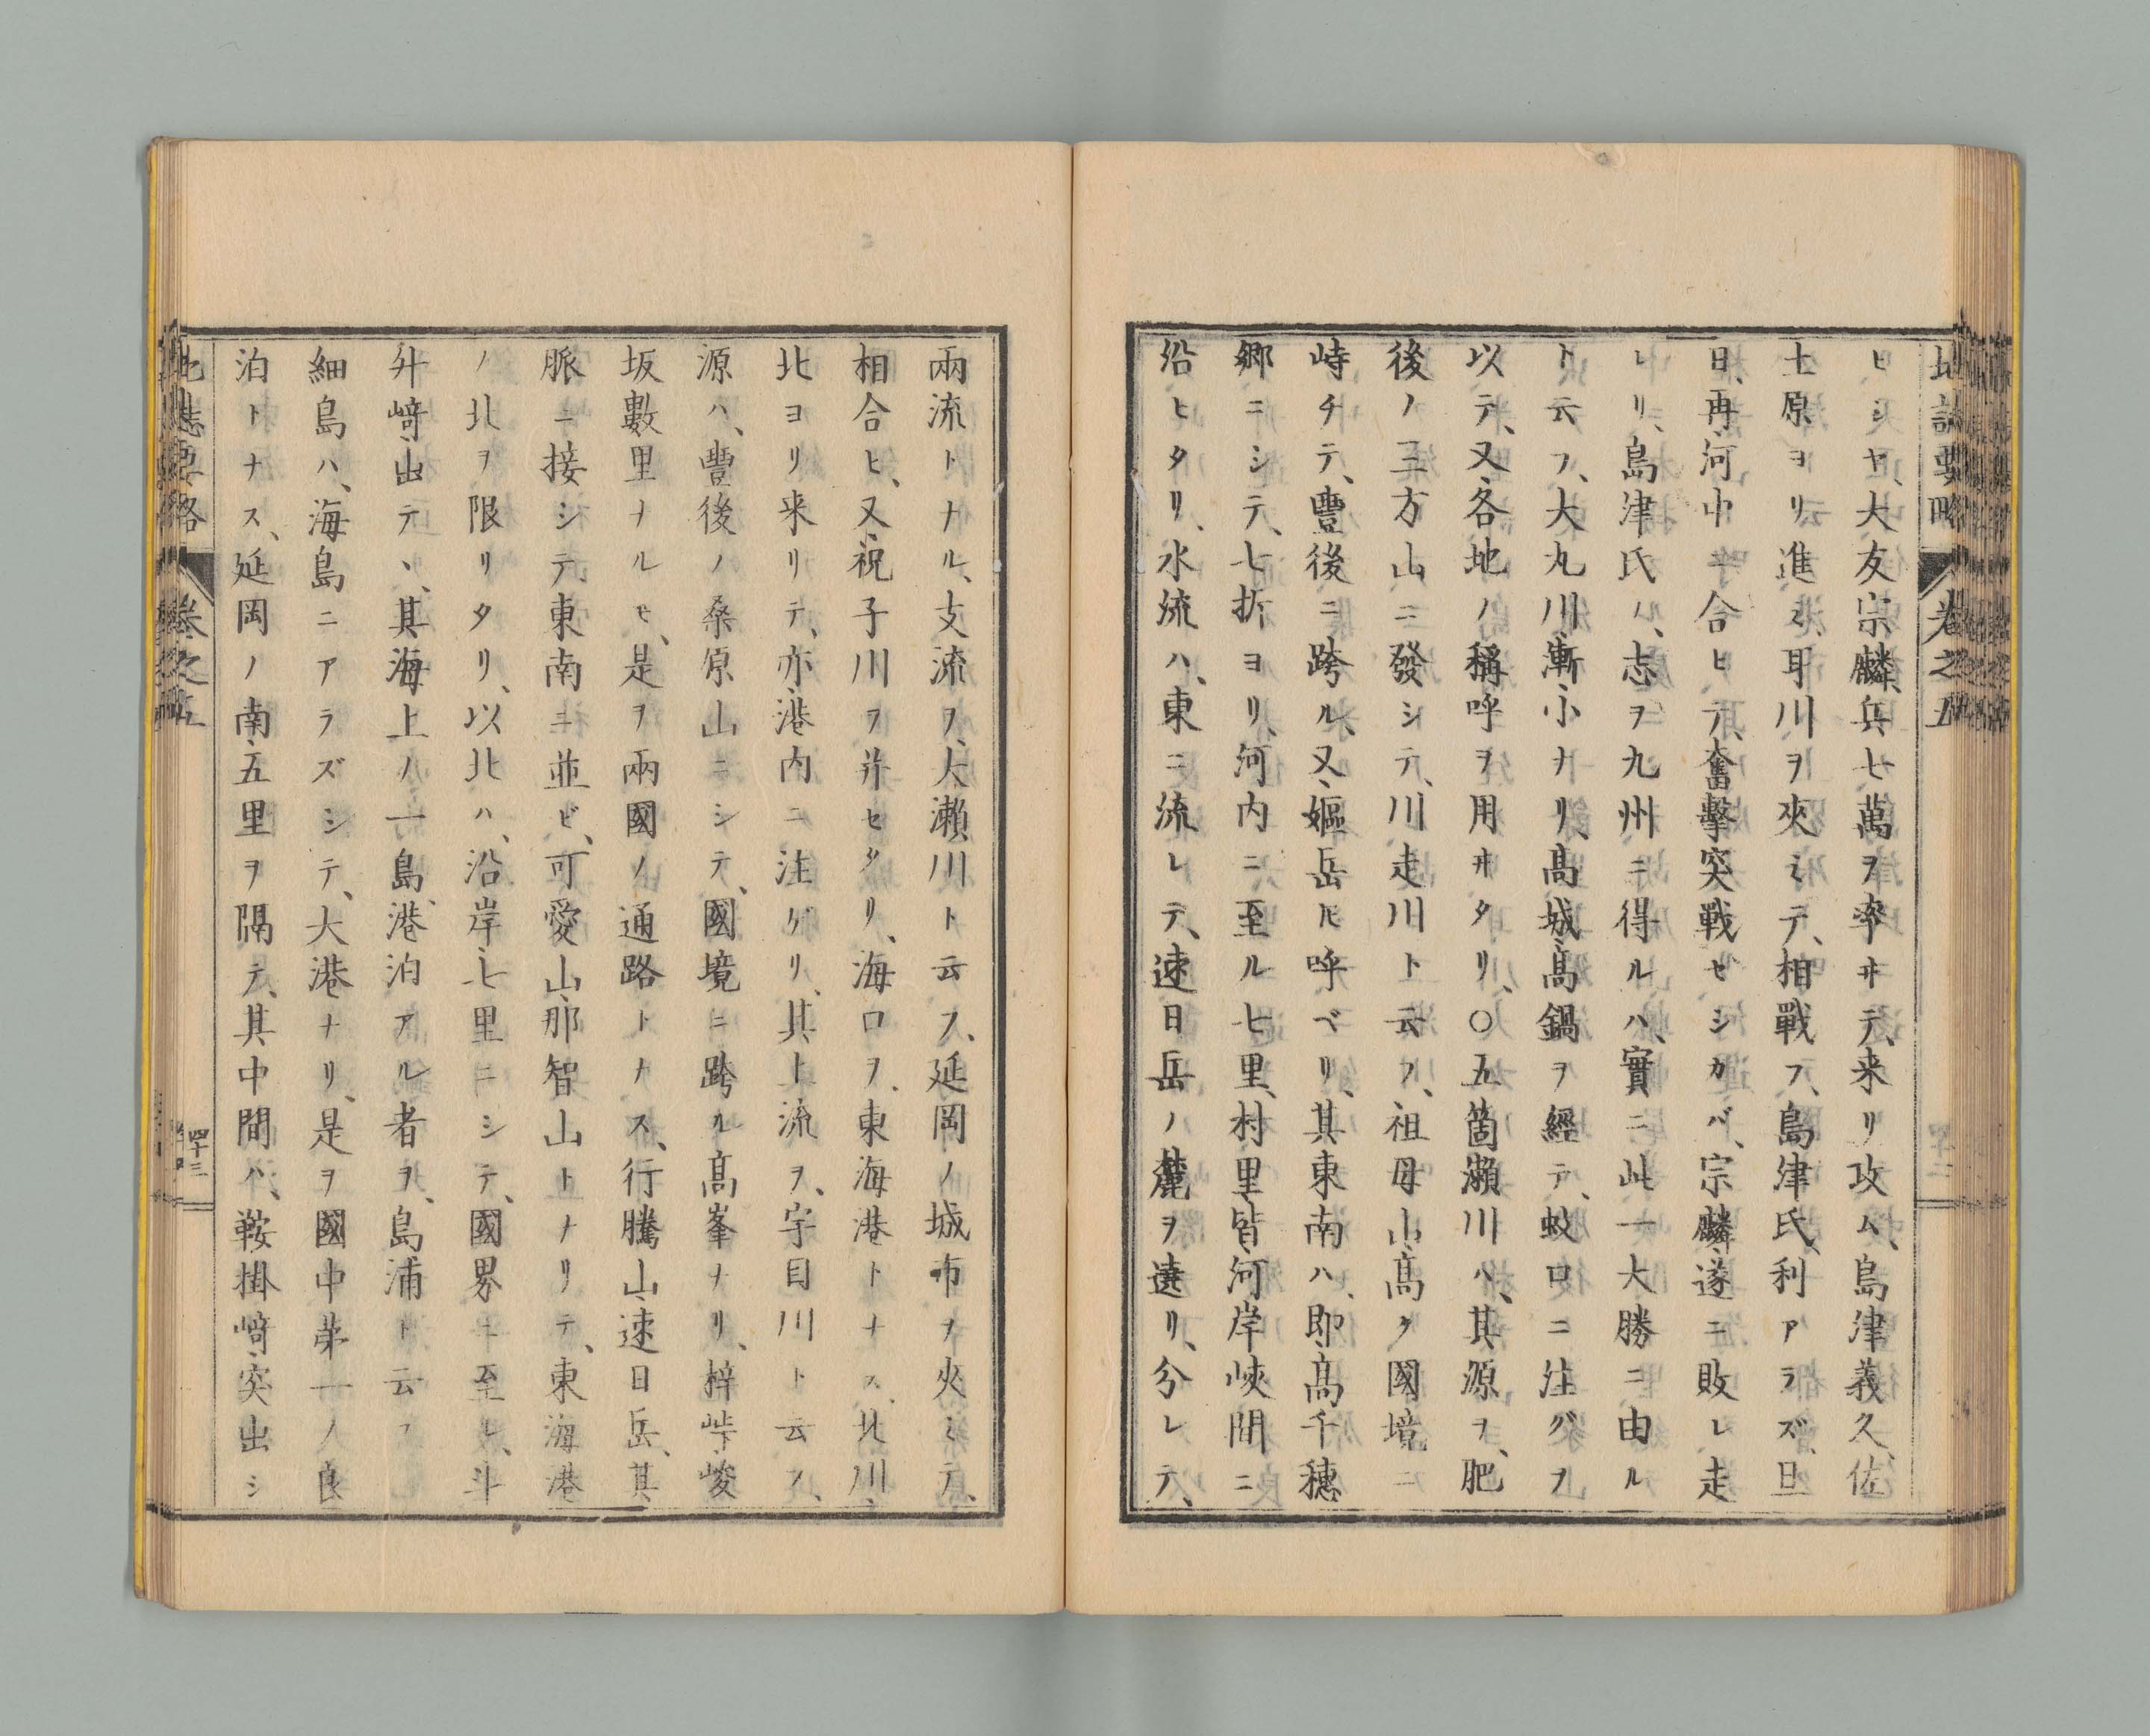 地誌要略 卷之五
ヒシヤ、大友宗麟、兵七萬ヲ率ヰテ、来リ攻ム、島津義久、佐
土原ヨリ進ミ、耳川ヲ夾ミテ、相戰フ、島津氏、利アラズ、旦
日、再、河中ニ合ヒテ、奮擊突戰セシカバ、宗麟、遂ニ敗レ走
レリ、島津氏ノ、志ヲ九州ニ得ルハ、實ニ此一大勝ニ由ル
ト云フ、大丸川、漸小ナリ、髙城、髙鍋ヲ經テ、蚊口ニ注グヲ
以テ、又、各地ノ稱呼ヲ用ヰタリ、〇五箇瀨川ハ、其源ヲ、肥
後ノ三方山ニ發シテ、川走川ト云フ、祖母山、髙ク國境ニ
峙チテ、豐後ニ跨ル、又、嫗岳𪜈呼ベリ、其東南ハ、即髙千穗
郷ニシテ、七折ヨリ、河内ニ至ル七里、村里皆、河岸峽間ニ
沿ヒタリ、水流ハ、東ニ流レテ、速日岳ノ麓ヲ遶リ、分レテ、
兩流トナル、支流ヲ、大瀨川ト云フ、延岡ノ城市ヲ夾ミテ、
相合ヒ、又、祝子川ヲ幷セタリ、海口ヲ、東海港トナス、北川、
北ヨリ来リテ、亦、港内ニ注ゲリ、其上流ヲ、宇目川ト云フ、
源ハ、豐後ノ桑原山ニシテ、國境ニ跨ル髙峯ナリ、梓峠、峻
坂數里ナルモ、是ヲ兩國ノ通路トナス、行騰山、速日岳、其
脈ニ接シテ東南ニ並ビ、可愛山、那智山トナリテ、東海港
ノ北ヲ限リタリ、以北ハ、沿岸七里ニシテ、國界ニ至レ、斗
升﨑、出テヽ、其海上ノ一島、港泊アル者ヲ、島浦ト云フ
細島ハ、海島ニアラズシテ、大港ナリ、是ヲ國中第一ノ良
泊トナス、延岡ノ南、五里ヲ隔テ、其中間ハ、鞍掛﨑、突出シ
地誌要略 卷之五 四十三